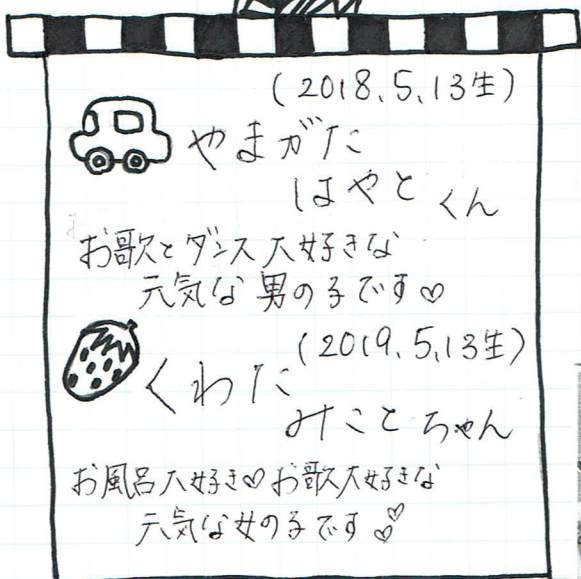 (2018.5.13生)
やまがた
はやと くん
お歌とダンス大好きな
元気な男の子です♡
(2019.5.13生)
くわた
みこと ちゃん
お風呂大好き♡お歌大好きな
元気な女の子です♡♡